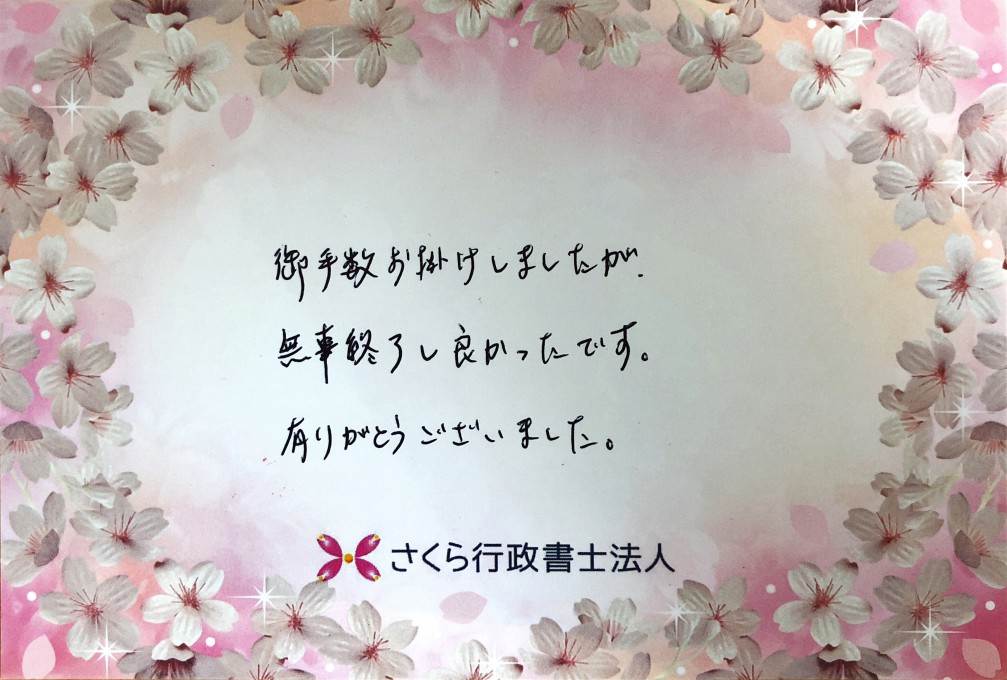 御手数お掛けしましたが、
無事終了し良かったです。
有りがとうございました。
さくら行政書士法人